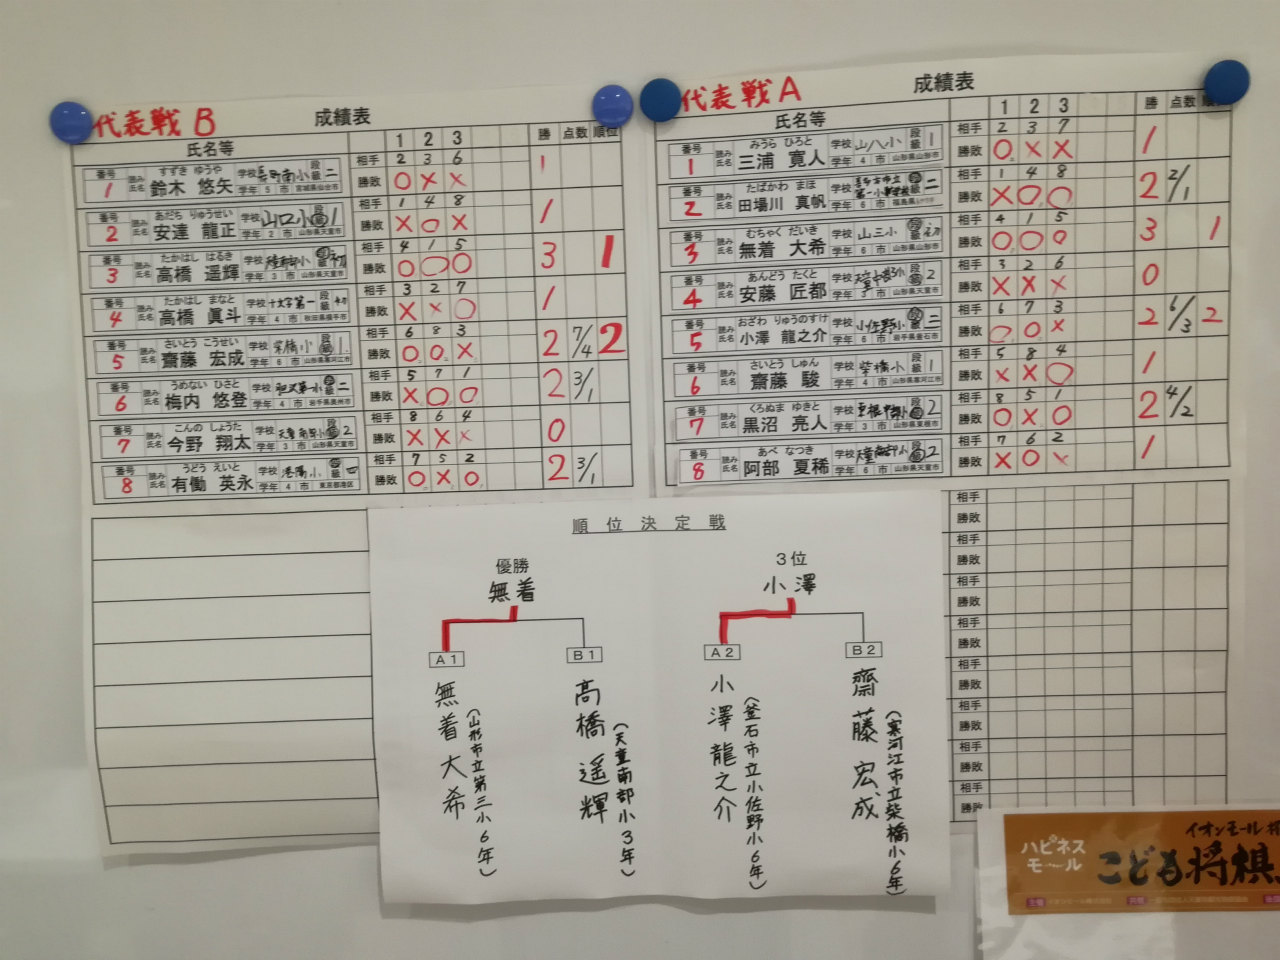 代表戦 B
成績表
氏名等 1 2 3 勝 点数 順位
番号 1 読み氏名 すずき ゆうや 鈴木 悠矢 学校 長町南小 段級 二 学年 5 市 宮城県仙台市
相手 2 3 6
勝敗 ○ × × 1
番号 2 読み氏名 あだち りゅうせい 安達 龍正 学校 山口小 段級 1 学年 2 市 山形県天童市
相手 1 4 8
勝敗 × ○ × 1
番号 3 読み氏名 たかはし はるき 高橋 遥輝 学校 段級 初 学年 3 市 山形県天童市
相手 4 1 5
勝敗 ○ ○ ○ 3 1
番号 4 読み氏名 たかはし まなと 高橋 眞斗 学校 十文字第一 段級 初 学年 4 市 秋田県横手市
相手 3 2 7
勝敗 × × ○ 1
番号 5 読み氏名 さいとう こうせい 齋藤 宏成 学校 柴橋小 段級 1 学年 6 市 山形県寒河江市
相手 6 8 3
勝敗 ○ ○ × 2 7/4 2
番号 6 読み氏名 うめない ひさと 梅内 悠登 学校 段級 二 学年 4 市 岩手県奥州市
相手 5 7 1
勝敗 × ○ ○ 2 3/1
番号 7 読み氏名 こんの しょうた 今野 翔太 学校 段級 2 学年 3 市 山形県天童市
相手 8 6 4
勝敗 × × × 0
番号 8 読み氏名 うどう えいと 有働 英永 学校 港陽小 段級 四 学年 4 市 東京都港区
相手 7 5 2
勝敗 ○ × ○ 2 3/1
代表戦 A
成績表
氏名等 1 2 3 勝 点数 順位
番号 1 読み氏名 みうら ひろと 三浦 寛人 学校 山八小 段級 1 学年 4 市 山形県山形市
相手 2 3 7
勝敗 ○ × × 1
番号 2 読み氏名 たばかわ まほ 田場川 真帆 学校 段級 二 学年 6 市 福島県
相手 1 4 8
勝敗 × ○ ○ 2 2/1
番号 3 読み氏名 むちゃく だいき 無着 大希 学校 山三小 段級 初 学年 6 市 山形県山形市
相手 4 1 5
勝敗 ○ ○ ○ 3 1
番号 4 読み氏名 あんどう たくと 安藤 匠都 学校 段級 2 学年 3 市 山形県天童市
相手 3 2 6
勝敗 × × × 0
番号 5 読み氏名 おざわ りゅうのすけ 小澤 龍之介 学校 小佐野小 段級 二 学年 6 市 岩手県釜石市
相手 6 7 3
勝敗 ○ ○ × 2 6/3 2
番号 6 読み氏名 さいとう しゅん 齋藤 駿 学校 柴橋小 段級 1 学年 4 市 山形県寒河江市
相手 5 8 4
勝敗 × × ○ 1
番号 7 読み氏名 くろぬま ゆきと 黒沼 亮人 学校 段級 2 学年 3 市 山形県東根市
相手 8 5 1
勝敗 ○ × ○ 2 4/2
番号 8 読み氏名 あべ なつき 阿部 夏稀 学校 段級 2 学年 6 市 山形県天童市
相手 7 6 2
勝敗 × ○ × 1
相手
勝敗
相手
勝敗
相手
勝敗
相手
勝敗
相手
勝敗
相手
勝敗
相手
勝敗
相手
勝敗
順位決定戦
優勝
無着
A1 B1
無着大希
(山形市立第三小6年)
高橋遥輝
(天童南部小3年)
3位
小澤
A2 B2
小澤龍之介
(釜石市立小佐野小6年)
齋藤宏成
(寒河江市立柴橋小6年)
ハピネス
モール
イオンモール
こども将棋
主催
共催